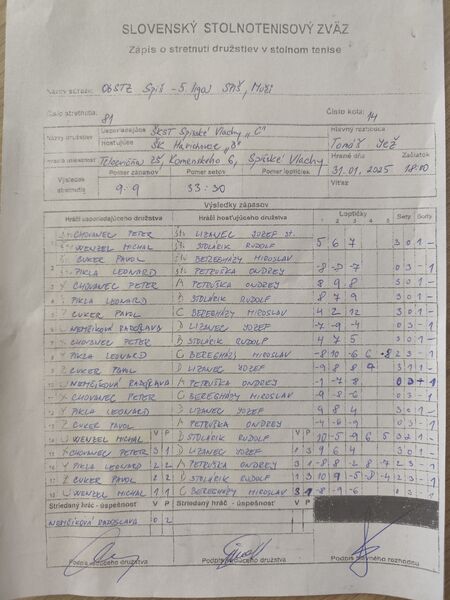 SLOVENSKÝ STOLNOTENISOVÝ ZVÄZ
Zápis o stretnutí družstiev v stolnom tenise
Názov súťaže: ObSTZ Spiš - 5 liga SPIŠ, Muži
Číslo stretnutia: 81 Číslo kola: 14
Názvy družstiev Usporiadajúce ŠKST Spišské Vlachy "C" Hlavný rozhodca
Hosťujúce ŠK Harichovce "B" Tomáš Jež
Hracia miestnosť Telocvičňa ZŠ, Komenského 6, Spišské Vlachy Hrané dňa 31.01.2025 Začiatok 18:00
Výsledok stretnutia Pomer zápasov 9:9 Pomer setov 33:30 Pomer loptičiek Víťaz
Výsledky zápasov
Hráči usporiadajúceho družstva Hráči hosťujúceho družstva Loptičky Sety Body
1 2 3 4 5
CHOVANEC PETER LIZANEC JOZEF st.
WENZEL MICHAL STOLÁRIK RUDOLF 5 6 7 3 0 1 -
CUKER PAVOL BEREGHÁZY MIROSLAV
PIKLA LEONARD PETRUŠKA ONDREY -8 -8 -7 0 3 - 1
CHOVANEC PETER A PETRUŠKA ONDREY 8 9 8 3 0 1 -
PIKLA LEONARD B STOLÁRIK RUDOLF 8 7 9 3 0 1 -
CUKER PAVOL C BEREGHÁZY MIROSLAV 4 2 12 3 0 1 -
NEMČÍKOVÁ RADOSLAVA D LIZANEC YOZEF -7 -9 -4 0 3 - 1
CHOVANEC PETER B STOLÁRIK RUDOLF 4 7 5 3 0 1 -
PIKLA LEONARD C BEREGHÁZY MIROSLAV -8 10 -6 6 -8 2 3 - 1
CUKER PAVOL D LIZANEC YOZEF -9 8 8 3 1 1 -
NEMČÍKOVÁ RADOSLAVA A PETRUŠKA ONDREY -1 -7 -8 0 3 - 1
CHOVANEC PETER C BEREGHÁZY MIROSLAV -9 -8 -6 0 3 - 1
PIKLA LEONARD D LIZANEC YOZEF 9 8 4 3 0 1 -
CUKER PAVOL A PETRUŠKA ONDREY 0 3 - 1
WENZEL MICHAL V P B STOLÁRIK RUDOLF V P 10 -5 -9 6 5 3 2 1 -
CHOVANEC PETER 3 1 D LIZANEC YOZEF 1 3 9 6 4 3 0 1 -
PIKLA LEONARD 2 2 A PETRUŠKA ONDREY 3 1 -8 8 -2 8 -7 2 3 - 1
CUKER PAVOL 2 2 B STOLÁRIK RUDOLF 1 3 10 9 -5 -8 -4 2 3 - 1
WENZEL MICHAL 1 1 C BEREGHÁZY MIROSLAV 3 1 -8 -9 -6 0 3 - 1
Striedaný hráč - úspešnosť V P Striedaný hráč - úspešnosť V P
NEMČÍKOVÁ RADOSLAVA 0 2
Podpis vedúceho družstva Podpis vedúceho družstva Podpis hlavného rozhodcu